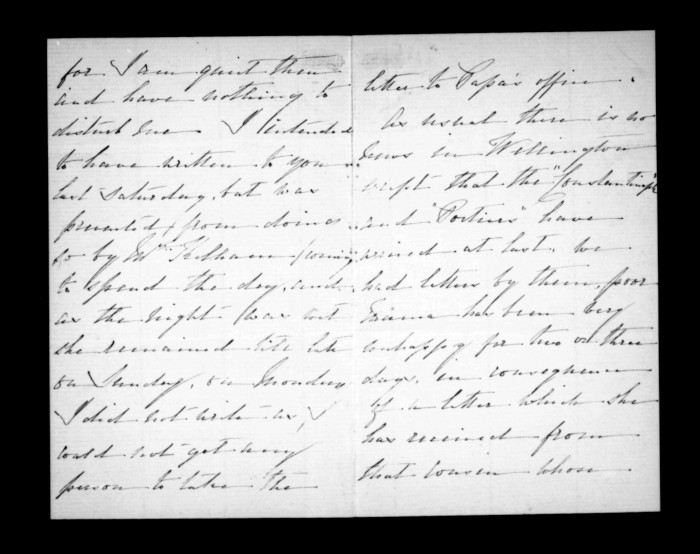 for I am quiet then
and have nothing to
disturb me. I intended
to have written to you
last Saturday, but was
prevented from doing
so by Mrs Kelham coming
to spend the day, and
as the night was wet
she remained till late
on Sunday, on Monday
I did not write as I
could not get any
person to take the
letter to Papa's office.
As usual there is no
news in Wellington
except that the "Constantine"
and "Porteus" have
arrived at last. We
had letters by them, poor
has been very
unhappy for two or three
days, in consequence
of a letter which she
has received from
that cousin whose